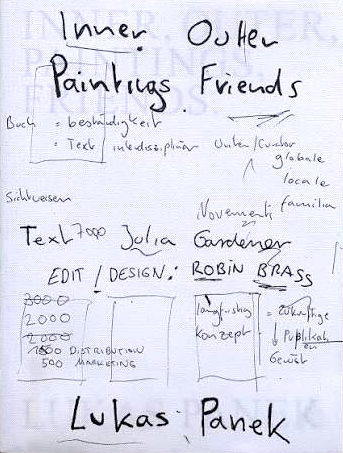 INNER, OUTER,
PAINTINGS,
FRIENDS.
Inner Outer
Paintings Friends
Buch = beständigkeit
= Text interdisziplinär Writer/Curator
globale
locale
familia
Sichtweisen
Text 7000 Julia Gardener
EDIT / DESIGN: ROBIN BRASS
3000
2000
2000
1500 DISTRIBUTION
500 MARKETING
langfristig = zukünftige
Konzept
LUKAS PANEK
Lukas Panek